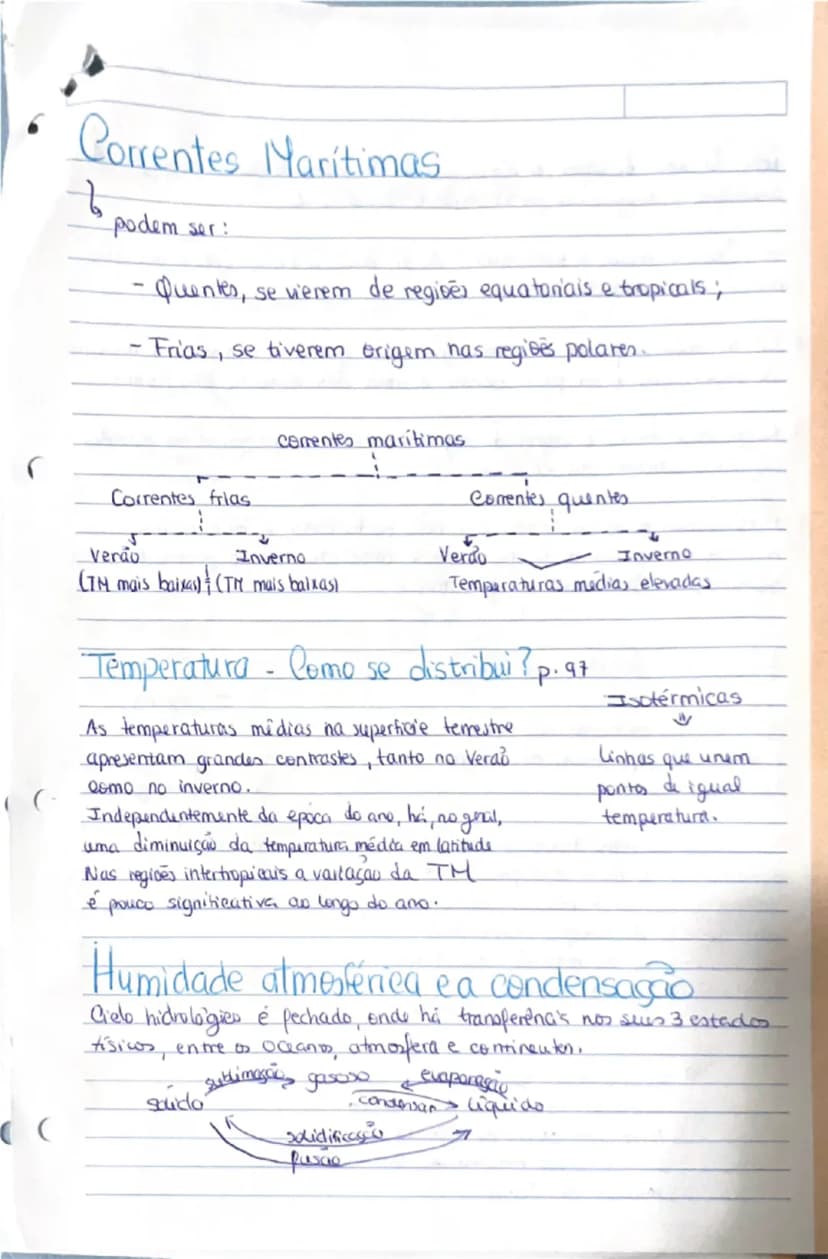 Correntes Marítimas
podem ser:
- Quentes, se vierem de regiões equatoriais e tropicais;
- Frias, se tiverem origem nas regiões polares.
correntes marítimas
Correntes frias
Correntes quentes
Verão
Inverno
Verão
Inverno
(TM mais baixas) (TM mais baixas)
Temperaturas médias elevadas
Temperatura - Como se distribui? p. 97
Isotérmicas
As temperaturas médias na superfície terrestre
apresentam grandes contrastes, tanto no Verão
como no inverno.
Linhas que unem
pontos de igual
temperatura.
Independentemente da época do ano, há, no geral,
uma diminuição da temperatura média em latitude
Nas regiões intertropicais a variação da TM
é pouco significativa ao longo do ano.
Humidade atmosférica e a condensação
Ciclo hidrológico é fechado, onde há transferências nos seus 3 estados
físicos, entre os oceanos, atmosfera e continentes.
sublimação gasoso evaporação
sólido
condensan líquido
solidificação
fusão